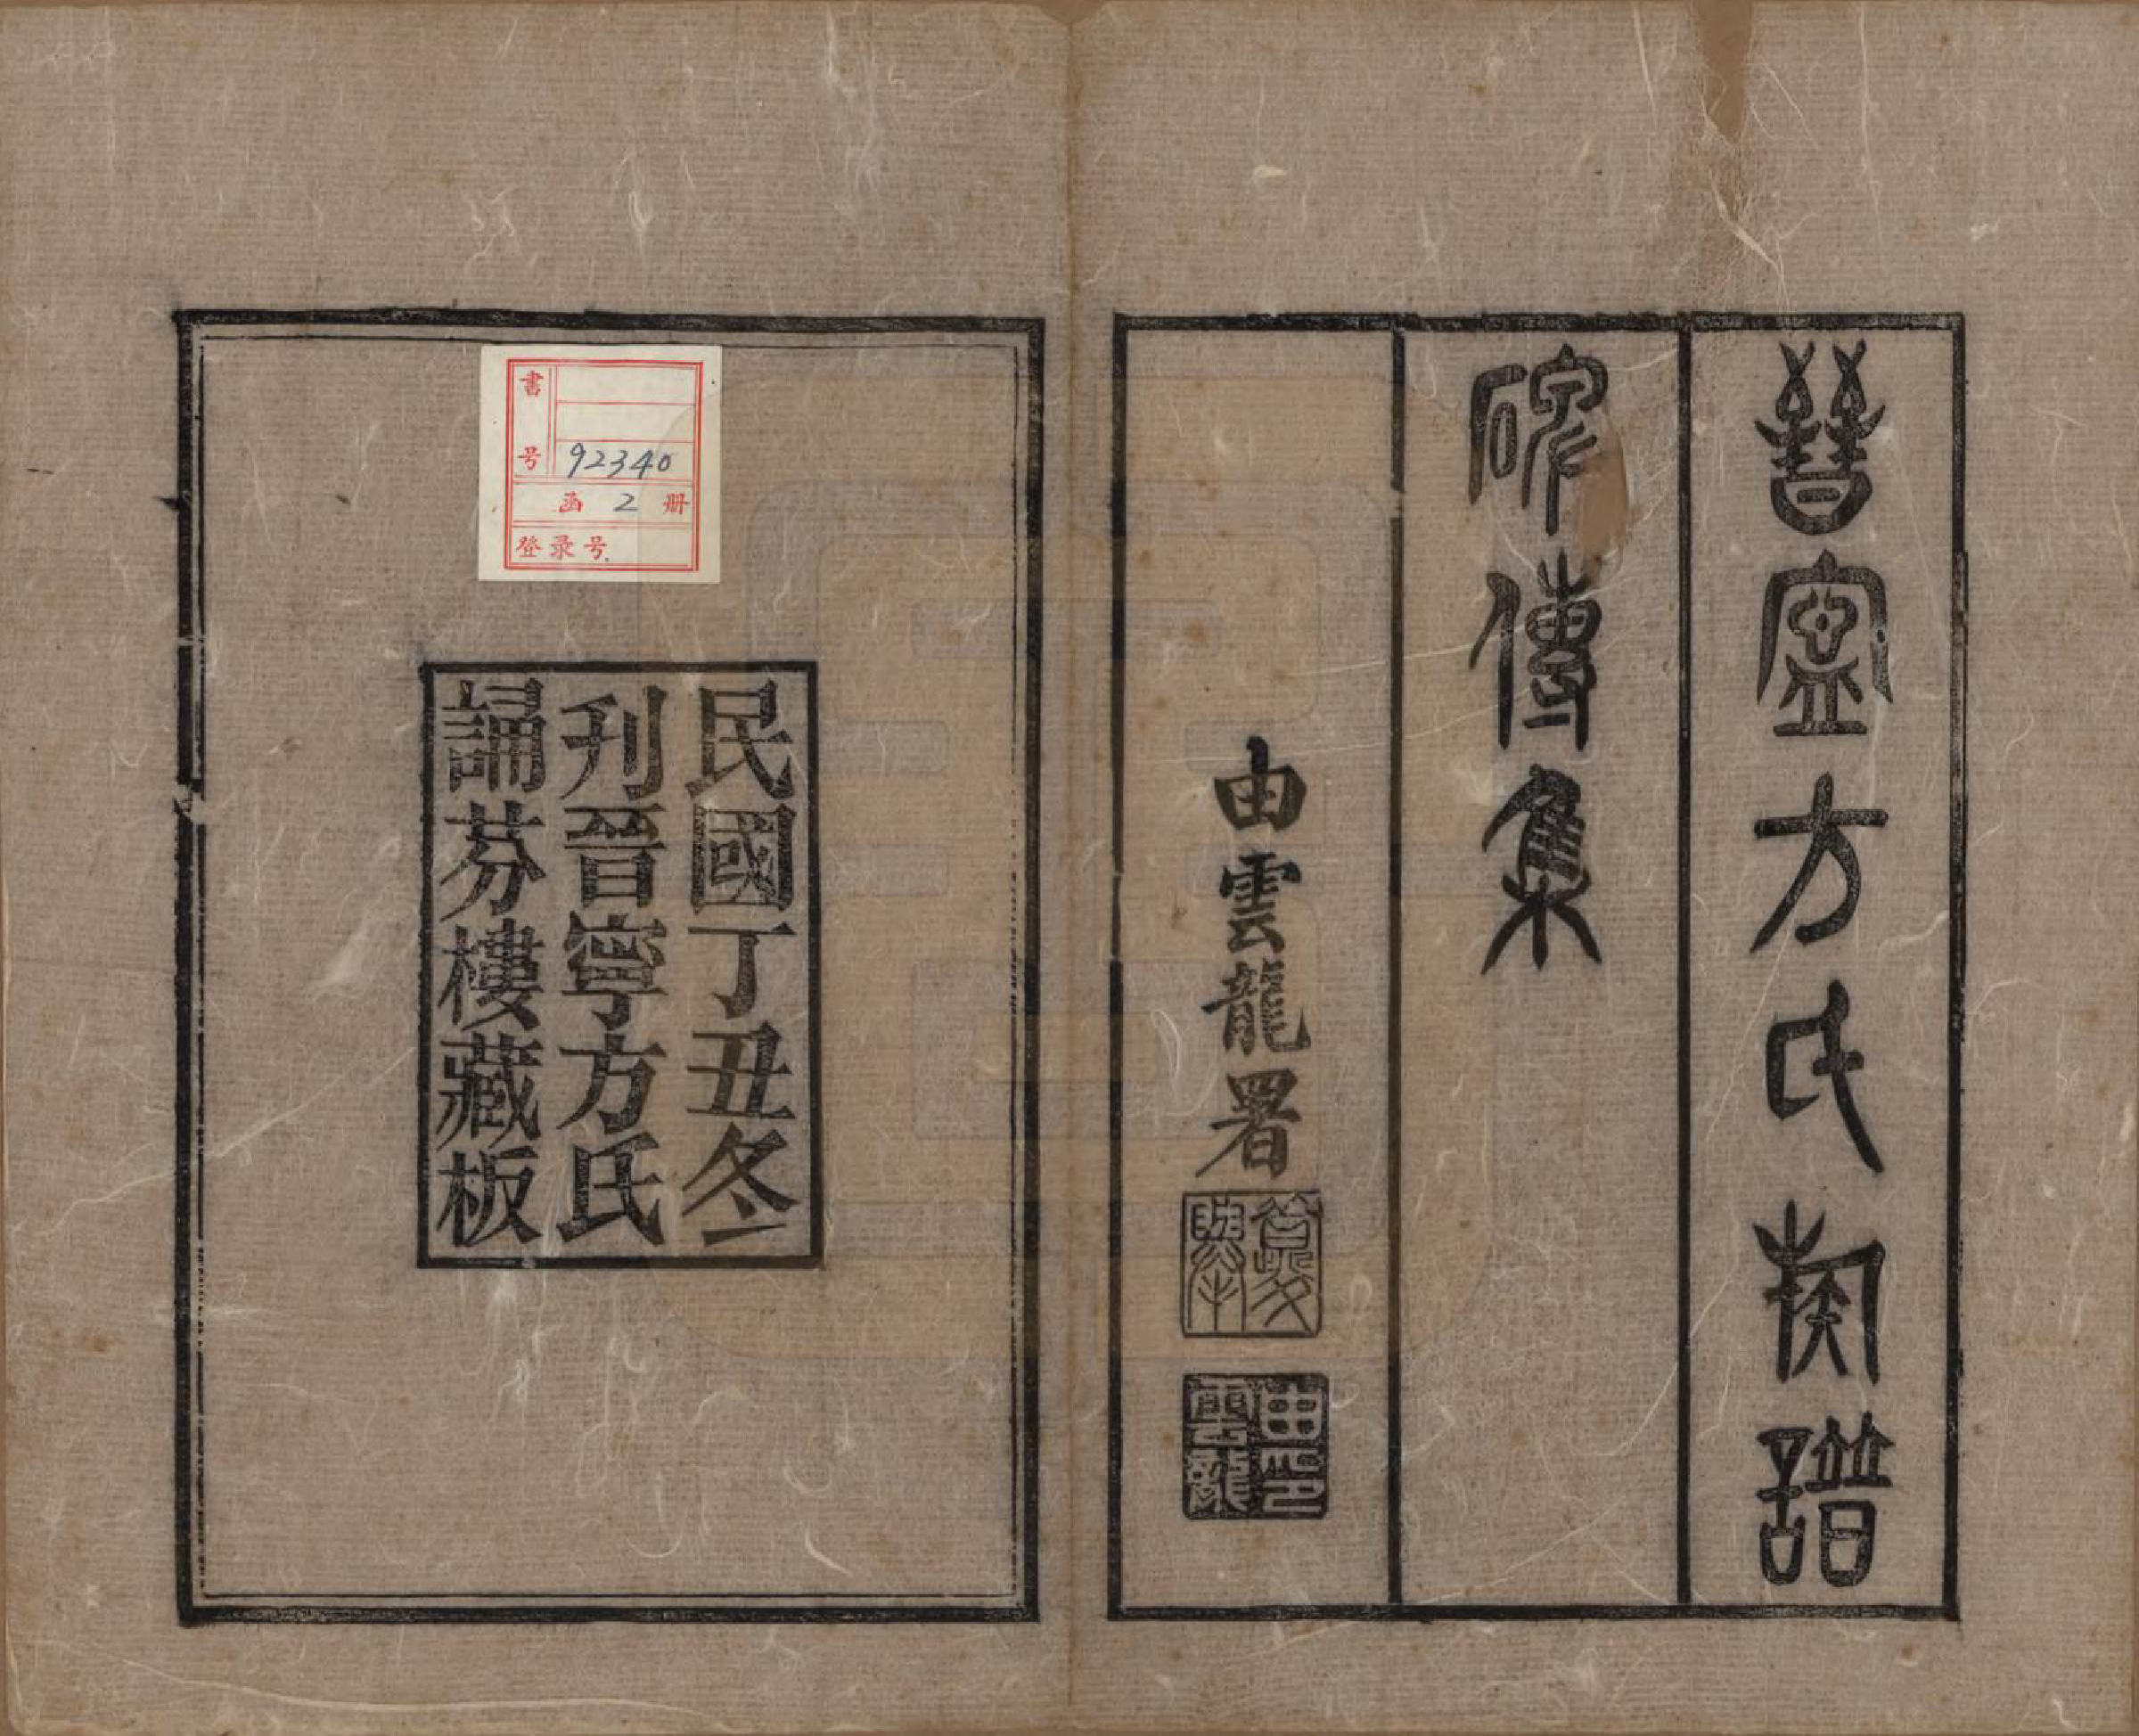 晉寧方氏族譜
碑傳集
由雲龍署
夔舉
由印
雲龍
民國丁丑冬
刋晉寧方氏
誦芬樓藏板
書号 92340
函 2 册
登录号